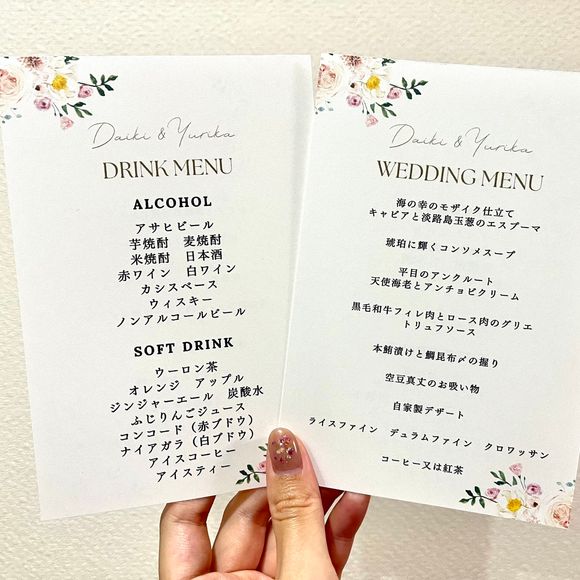 Daiki & Yurika
DRINK MENU
ALCOHOL
アサヒビール
芋焼酎　麦焼酎
米焼酎　日本酒
赤ワイン　白ワイン
カシスベース
ウィスキー
ノンアルコールビール
SOFT DRINK
ウーロン茶
オレンジ　アップル
ジンジャーエール　炭酸水
ふじりんごジュース
コンコード（赤ブドウ）
ナイアガラ（白ブドウ）
アイスコーヒー
アイスティー
Daiki & Yurika
WEDDING MENU
海の幸のモザイク仕立て
キャビアと淡路島玉葱のエスプーマ
琥珀に輝くコンソメスープ
平目のアンクルート
天使海老とアンチョビクリーム
黒毛和牛フィレ肉とロース肉のグリエ
トリュフソース
本鮪漬けと鯛昆布〆の握り
空豆真丈のお吸い物
自家製デザート
ライスファイン　デュラムファイン　クロワッサン
コーヒー又は紅茶